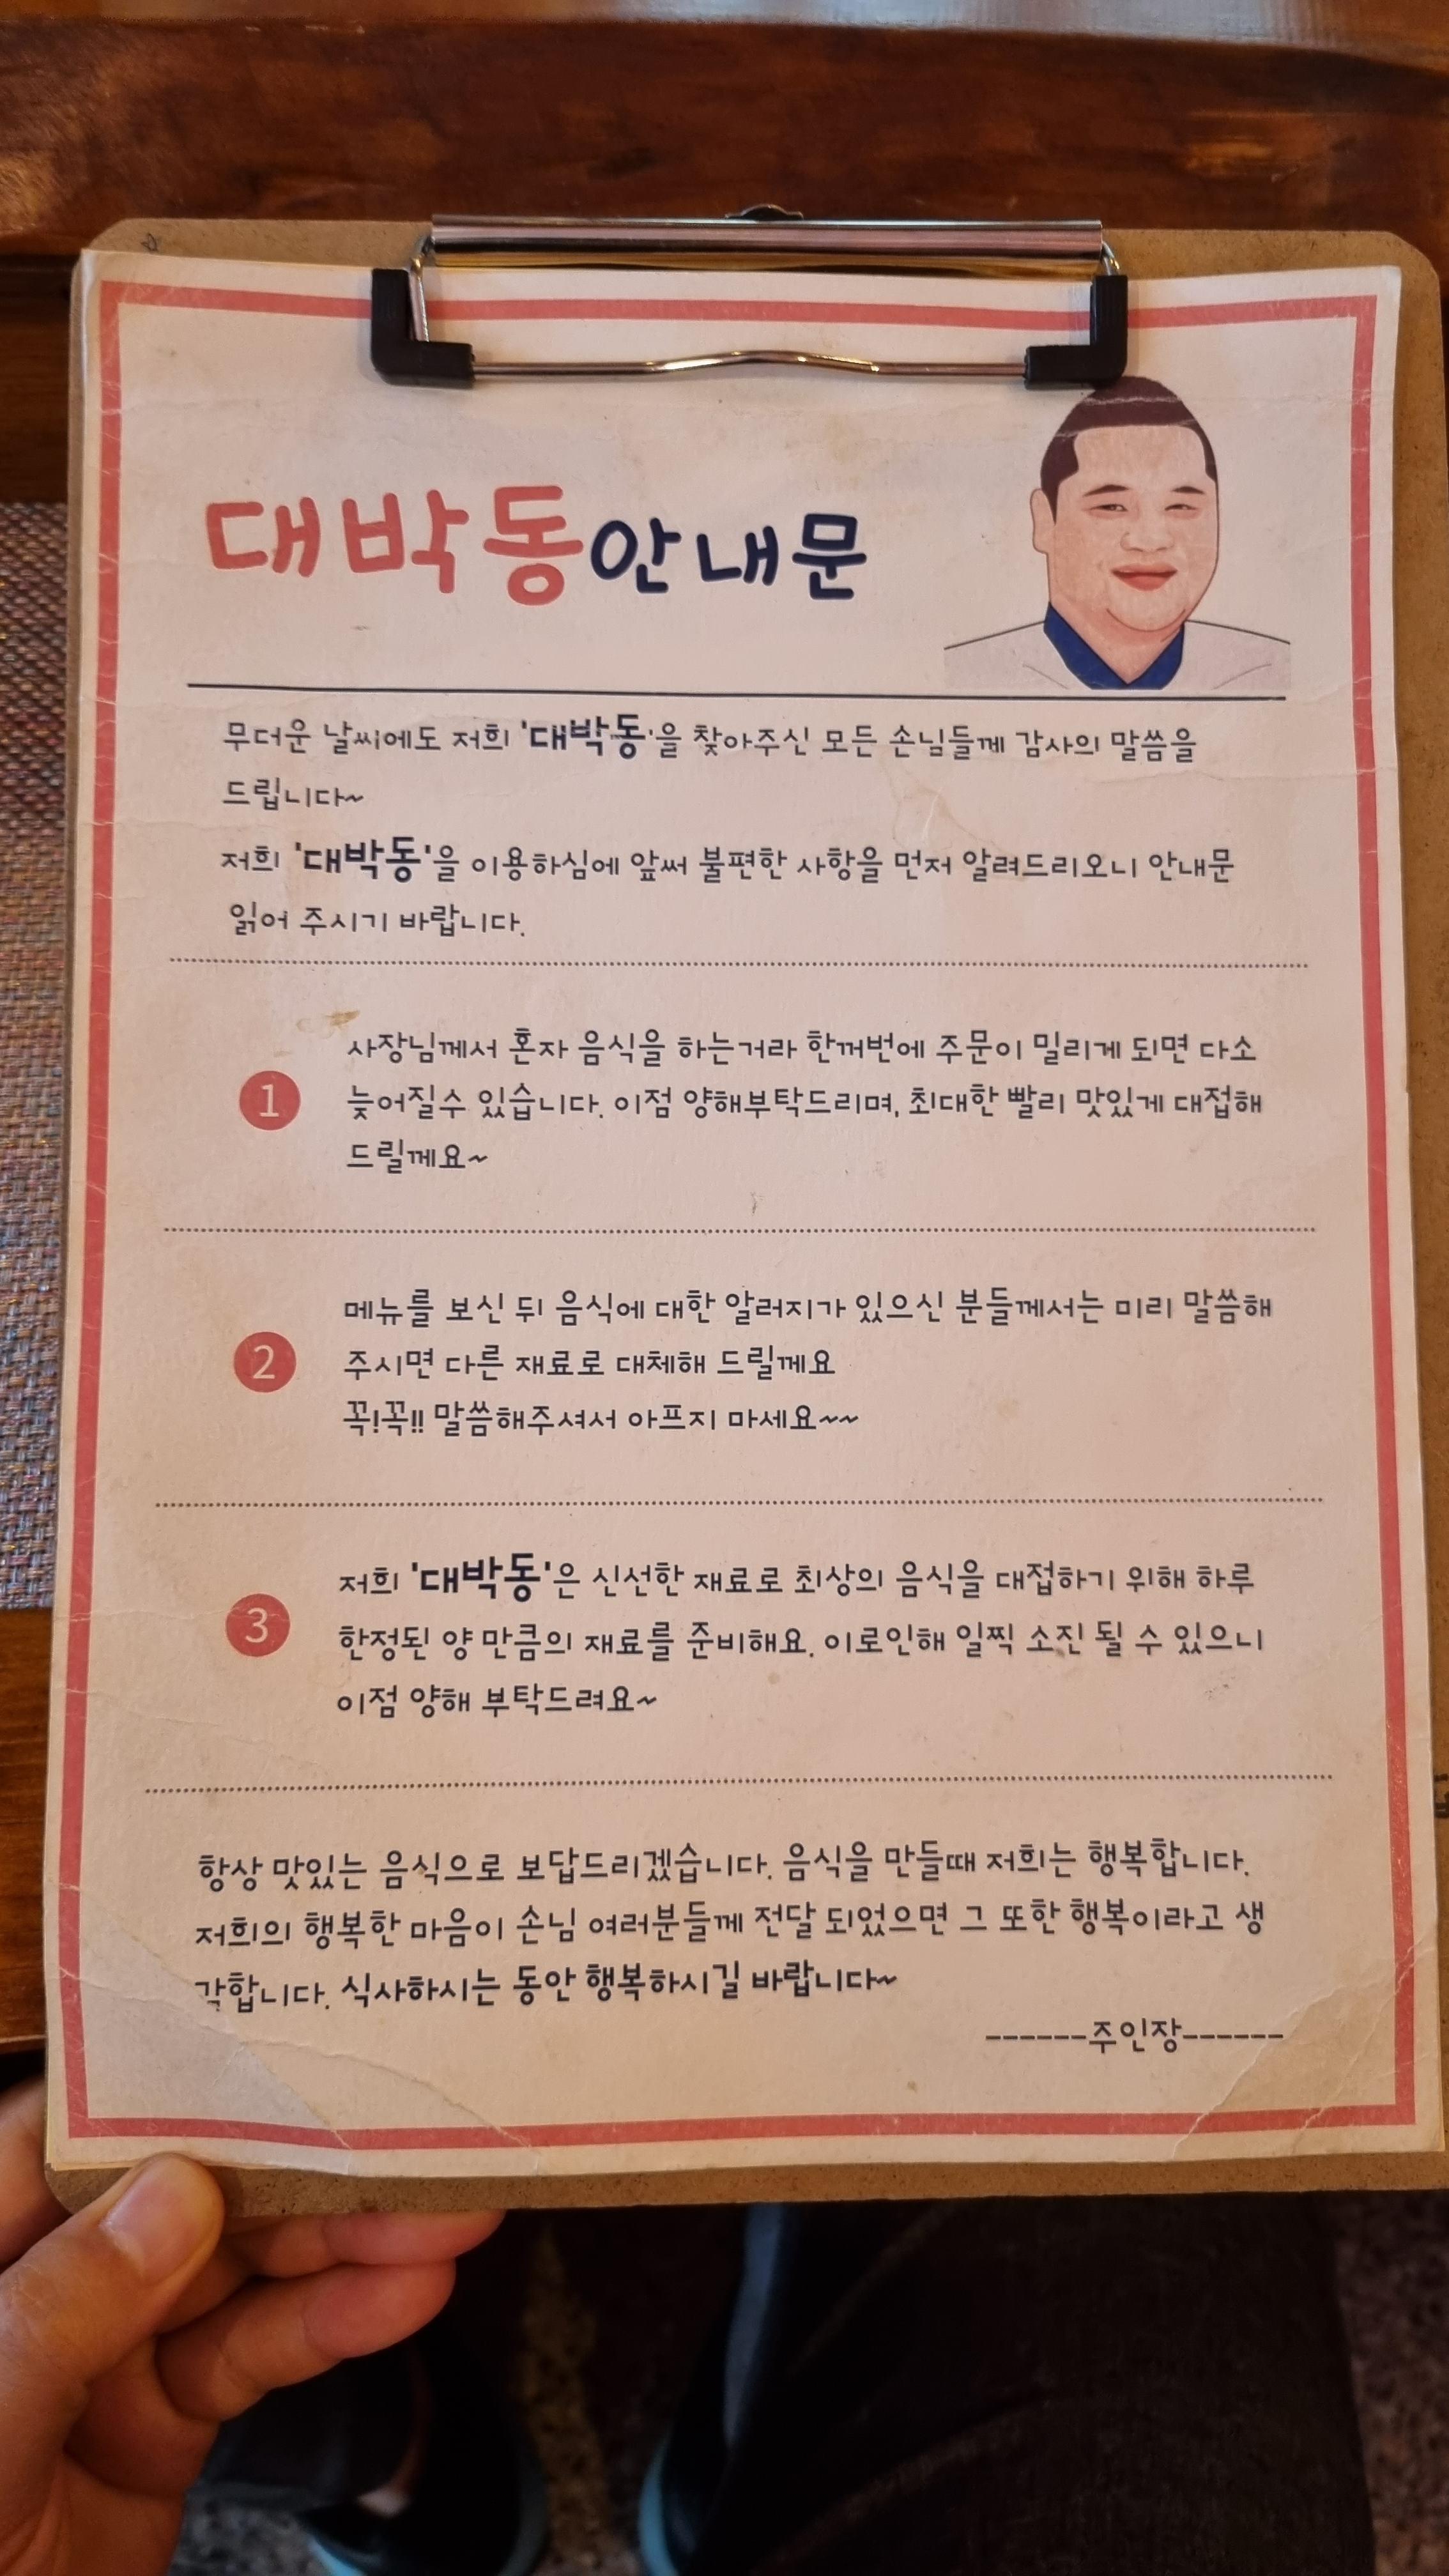 대박동안내문
무더운 날씨에도 저희 '대박동'을 찾아주신 모든 손님들께 감사의 말씀을
드립니다~
저희 '대박동'을 이용하심에 앞써 불편한 사항을 먼저 알려드리오니 안내문
읽어 주시기 바랍니다.
1
사장님께서 혼자 음식을 하는거라 한꺼번에 주문이 밀리게 되면 다소
늦어질수 있습니다. 이점 양해부탁드리며, 최대한 빨리 맛있게 대접해
드릴께요~
2
메뉴를 보신 뒤 음식에 대한 알러지가 있으신 분들께서는 미리 말씀해
주시면 다른 재료로 대체해 드릴께요
꼭!꼭!! 말씀해주셔서 아프지 마세요~~
3
저희 '대박동'은 신선한 재료로 최상의 음식을 대접하기 위해 하루
한정된 양 만큼의 재료를 준비해요. 이로인해 일찍 소진 될 수 있으니
이점 양해 부탁드려요~
항상 맛있는 음식으로 보답드리겠습니다. 음식을 만들때 저희는 행복합니다.
저희의 행복한 마음이 손님 여러분들께 전달 되었으면 그 또한 행복이라고 생
각합니다. 식사하시는 동안 행복하시길 바랍니다~
------주인장------